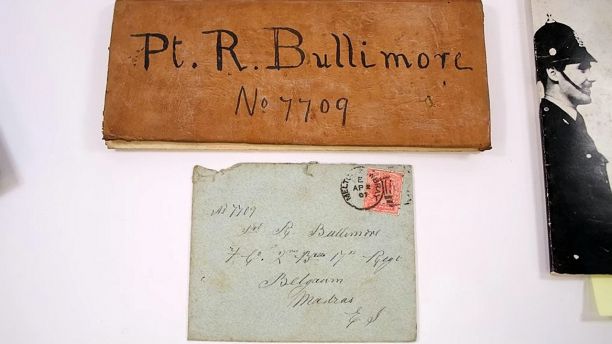 Pt. R. Bullimore
No 7709
MELTON MOWBRAY
E
AP 2
No 7709
Pte R Bullimore
F Co. 2nd Batt 17th Regt
Belgaum
Madras
E I